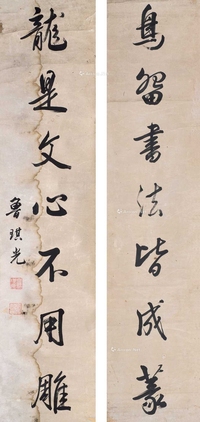 鳥留書法皆成篆
龍是文心不用雕
魯琪光